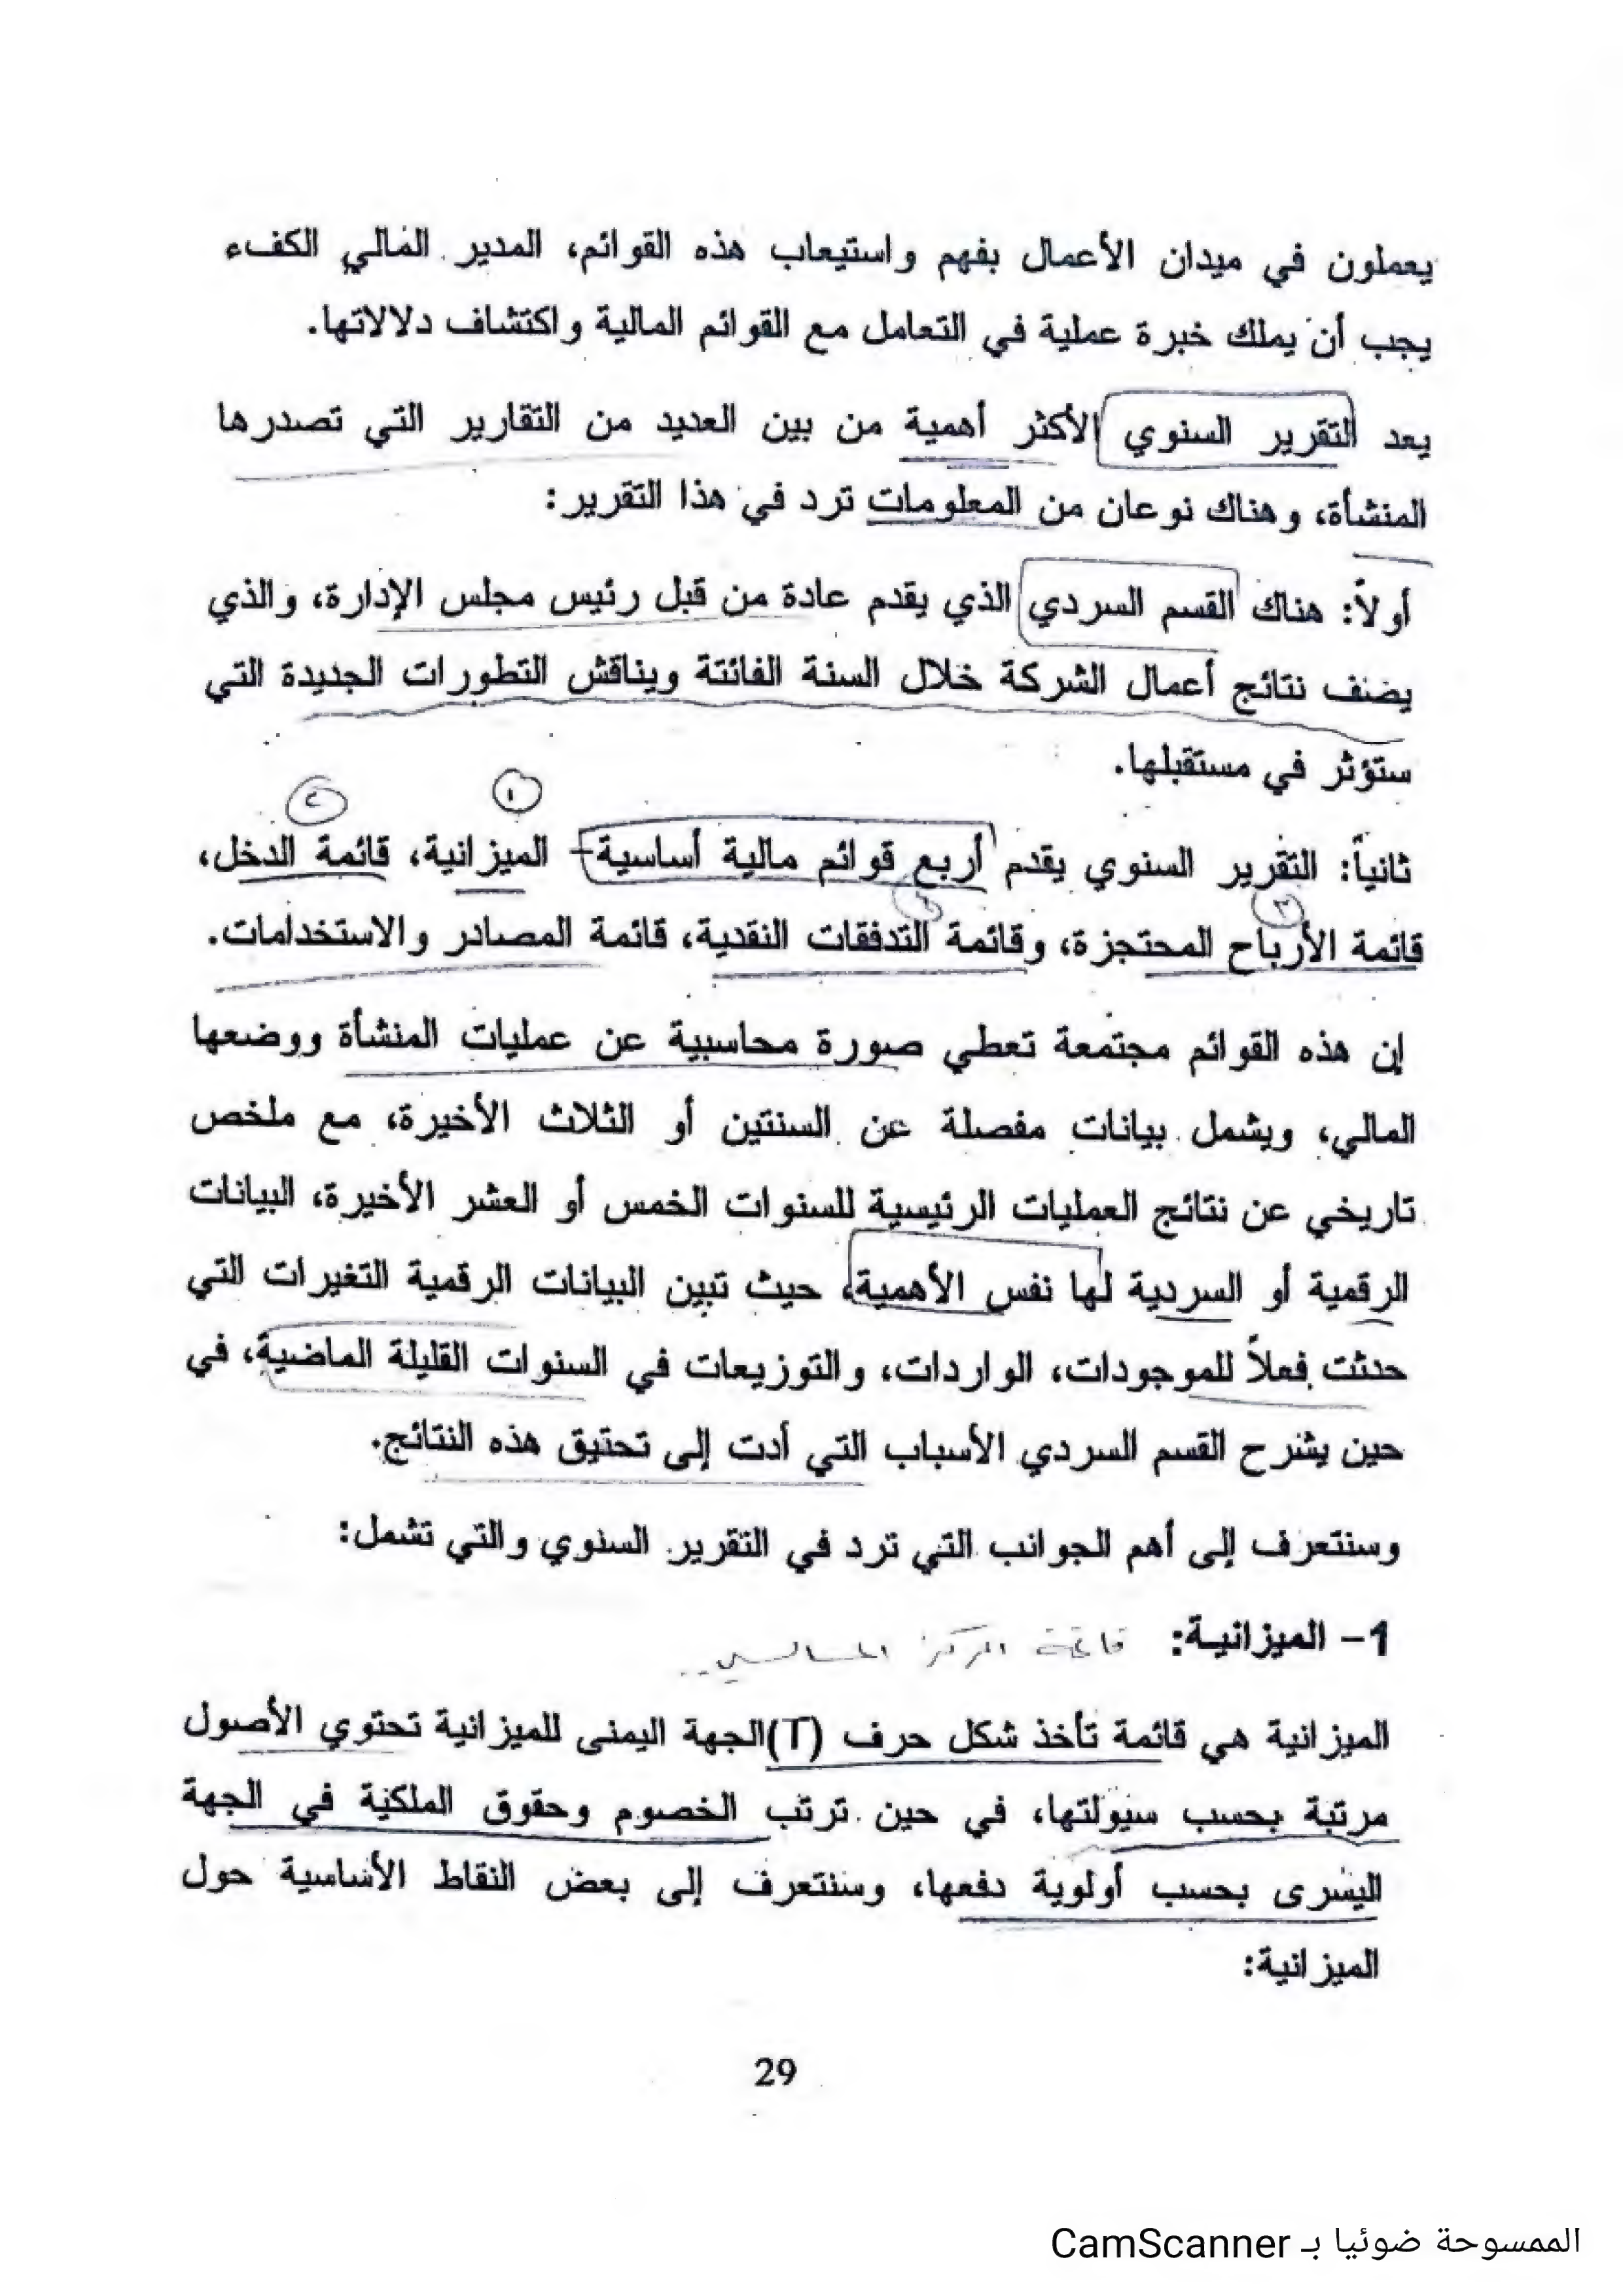 يعملون في ميدان الأعمال بفهم واستيعاب هذه القوائم، المدير المالي الكفء
يجب أن يملك خبرة عملية في التعامل مع القوائم المالية واكتشاف دلالاتها.
يعد التقرير السنوي الأكثر أهمية من بين العديد من التقارير التي تصدرها
المنشأة، وهناك نوعان من المعلومات ترد في هذا التقرير:
أولاً: هناك القسم السردي الذي يقدم عادة من قبل رئيس مجلس الإدارة، والذي
يضنف نتائج أعمال الشركة خلال السنة الفائتة ويناقش التطورات الجديدة التي
ستؤثر في مستقبلها.
١ ٢
ثانياً: التقرير السنوي يقدم أربع قوائم مالية أساسية- الميزانية، قائمة الدخل،
٣
قائمة الأرباح المحتجزة، وقائمة التدفقات النقدية، قائمة المصادر والاستخدامات.
إن هذه القوائم مجتمعة تعطي صورة محاسبية عن عمليات المنشأة ووضعها
المالي، ويشمل بيانات مفصلة عن السنتين أو الثلاث الأخيرة، مع ملخص
تاريخي عن نتائج العمليات الرئيسية للسنوات الخمس أو العشر الأخيرة، البيانات
الرقمية أو السردية لها نفس الأهمية، حيث تبين البيانات الرقمية التغيرات التي
حدثت فعلاً للموجودات، الواردات، والتوزيعات في السنوات القليلة الماضية، في
حين يشرح القسم السردي الأسباب التي أدت إلى تحقيق هذه النتائج.
وسنتعرف إلى أهم الجوانب التي ترد في التقرير السنوي والتي تشمل:
1- الميزانية: قائمة المركز المالي..
الميزانية هي قائمة تأخذ شكل حرف (T)الجهة اليمنى للميزانية تحتوي الأصول
مرتبة بحسب سيولتها، في حين ترتب الخصوم وحقوق الملكية في الجهة
اليسرى بحسب أولوية دفعها، وسنتعرف إلى بعض النقاط الأساسية حول
الميزانية:
29
الممسوحة ضوئيا بـ CamScanner